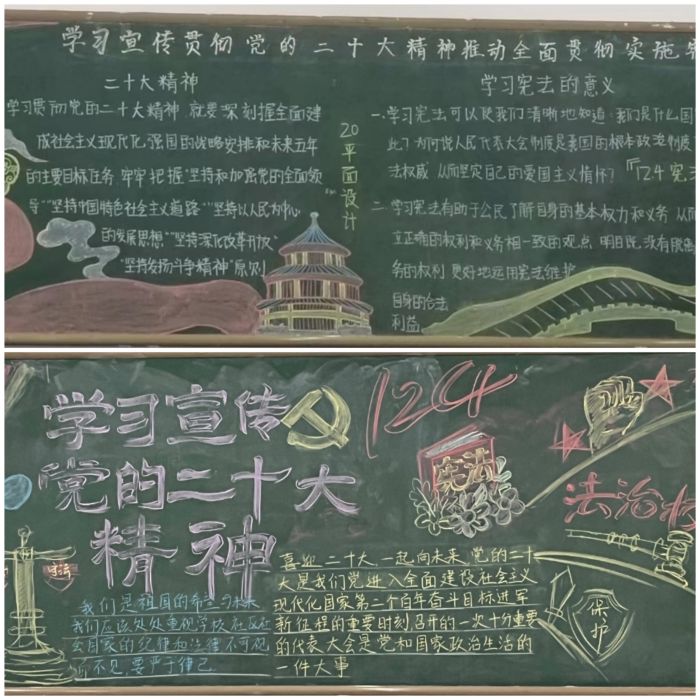 学习宣传贯彻党的二十大精神推动全面贯彻实施
二十大精神
学习贯彻党的二十大精神 就要深刻握全面建
成社会主义现代化强国的战略安排和未来五年
的主要目标任务 牢牢把握"坚持和加强党的全面领
导""坚持中国特色社会主义道路""坚持以人民为中心
的发展思想""坚持深化改革开放"
"坚持发扬斗争精神"原则
20平面设计
学习宪法的意义
一、学习宪法可以使我们清晰地知道:我们是什么国
此?为何说人民代表大会制度是我国的根本政治制度
法权威 从而坚定自己的爱国主义情怀?
『124宪法
二、学习宪法有助于公民了解自身的基本权力和义务 从而
立正确的权利和义务相一致的观点 明白既没有脱离
务的权利 更好地运用宪法维护
自身的合法
利益
学习宣传
党的二十大
精神
124
宪法
法治
守法
保护
我们是祖国的希望与未来
我们应该处处重视学校
去国家的纪律和法律不可视
而不见,要严于律己
喜迎二十大,一起向未来,党的二十
大是我们党进入全面建设社会主义
现代化国家第二个百年奋斗目标进军
新征程的重要时刻召开的一次十分重要
的代表大会是党和国家政治生活的
一件大事